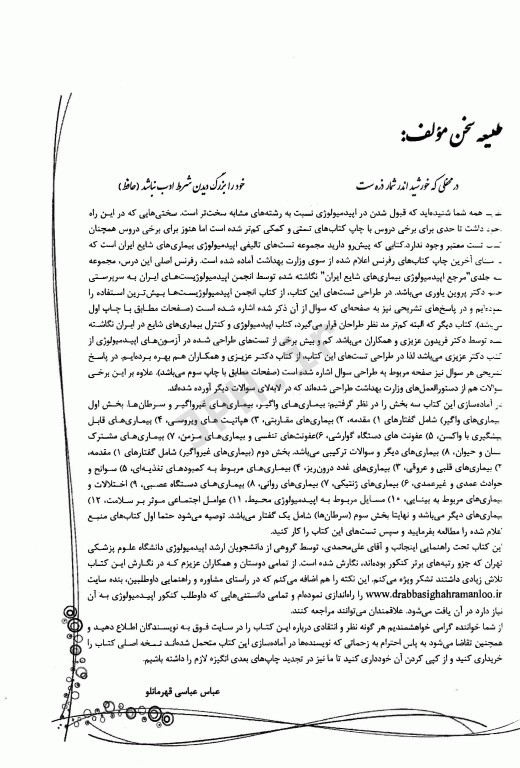 طلیعه سخن مؤلف:
در محفلی که خورشید اندر شمار ذره ست خود را بزرگ دیدن شرط ادب نباشد (حافظ)
همه شما شنیده‌اید که قبول شدن در اپیدمیولوژی نسبت به رشته‌های مشابه سخت‌تر است. سختی‌هایی که در این راه
داشت تا حدی برای برخی دروس با چاپ کتاب‌های تستی و کمکی کم‌تر شده است اما هنوز برای برخی دروس همچنان
تست معتبر وجود ندارد.کتابی که پیش‌رو دارید مجموعه تست‌های تالیفی اپیدمیولوژی بیماری‌های شایع ایران است که
آخرین چاپ کتاب‌های رفرنس اعلام شده از سوی وزارت بهداشت آماده شده است. رفرنس اصلی این درس، مجموعه
جلدی"مرجع اپیدمیولوژی بیماری‌های شایع ایران" نگاشته شده توسط انجمن اپیدمیولوژیست‌های ایران به سرپرستی
دکتر پروین یاوری می‌باشد. در طراحی تست‌های این کتاب، از کتاب انجمن اپیدمیولوژیست‌ها بیش‌ترین استفاده را
و در پاسخ‌های تشریحی نیز به صفحه‌ای که سوال از آن ذکر شده اشاره شده است (صفحات مطابق با چاپ اول
می‌باشد). کتاب دیگر که البته کم‌تر مد نظر طراحان قرار می‌گیرد، کتاب اپیدمیولوژی و کنترل بیماری‌های شایع در ایران نگاشته
شده توسط دکتر فریدون عزیزی و همکاران می‌باشد. کم و بیش برخی از تست‌های طراحی شده در آزمون‌های اپیدمیولوژی از
کتاب دکتر عزیزی می‌باشد لذا در طراحی تست‌های این کتاب، از کتاب دکتر عزیزی و همکاران هم بهره برده‌ایم. در پاسخ
تشریحی هر سوال نیز صفحه مربوط به طراحی سوال اشاره شده است (صفحات مطابق با چاپ سوم می‌باشد). علاوه بر این برخی
سوالات هم از دستورالعمل‌های وزارت بهداشت طراحی شده‌اند که در لابه‌لای سوالات دیگر آورده شده‌اند.
در آماده‌سازی این کتاب سه بخش را در نظر گرفتیم: بیماری‌های واگیر، بیماری‌های غیرواگیر و سرطان‌ها. بخش اول
(بیماری‌های واگیر) شامل گفتارهای ۱) مقدمه، ۲) بیماری‌های مقاربتی، ۳) هپاتیت‌های ویروسی، ۴) بیماری‌های قابل
پیشگیری با واکسن، ۵) عفونت های دستگاه گوارشی، ۶)عفونت‌های تنفسی و بیماری‌های مزمن، ۷) بیماری‌های مشترک
انسان و حیوان، ۸) بیماری‌های دیگر و سوالات ترکیبی می‌باشد. بخش دوم (بیماری‌های غیرواگیر) شامل گفتارهای ۱) مقدمه،
۲) بیماری‌های قلبی و عروقی، ۳) بیماری‌های غدد درون‌ریز، ۴) بیماری‌های مربوط به کمبودهای تغذیه‌ای، ۵) سوانح و
حوادث عمدی و غیرعمدی، ۶) بیماری‌های ژنتیکی، ۷) بیماری‌های روانی، ۸) بیماری‌های دستگاه عصبی، ۹) اختلالات و
بیماری‌های مربوط به بینایی، ۱۰) مسایل مربوط به اپیدمیولوژی محیط، ۱۱) عوامل اجتماعی موثر بر سلامت، ۱۲)
بیماری‌های دیگر می‌باشد و نهایتا بخش سوم (سرطان‌ها) شامل یک گفتار می‌باشد. توصیه می‌شود حتما اول کتاب‌های منبع
اعلام شده را مطالعه بفرمایید و سپس تست‌های این کتاب را کار کنید.
این کتاب تحت راهنمایی اینجانب و آقای علی‌محمدی، توسط گروهی از دانشجویان ارشد اپیدمیولوژی دانشگاه علوم پزشکی
تهران که جزو رتبه‌های برتر کنکور بوده‌اند، نگارش شده است. از تمامی دوستان و همکاران عزیزم که در نگارش این کتاب
تلاش زیادی داشتند تشکر ویژه می‌کنم. این نکته را هم اضافه می‌کنم که در راستای مشاوره و راهنمایی داوطلبین، بنده سایت
www.drabbasighahramanloo.ir را راه‌اندازی نموده‌ام و تمامی دانستنی‌هایی که داوطلب کنکور اپیدمیولوژی به آن
نیاز دارد در آن یافت می‌شود. علاقمندان می‌توانند مراجعه کنند.
از شما خواننده گرامی خواهشمندیم هر گونه نظر و انتقادی درباره این کتاب را در سایت فوق به نویسندگان اطلاع دهید و
همچنین تقاضا می‌شود به پاس احترام به زحماتی که نویسنده‌ها در آماده‌سازی این کتاب متحمل شده‌اند نسخه اصلی کتاب را
خریداری کنید و از کپی کردن آن خودداری کنید تا ما نیز در تجدید چاپ‌های بعدی انگیزه لازم را داشته باشیم.
عباس عباسی قهرمانلو